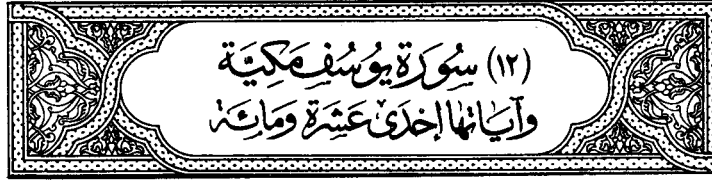 (١٢) سُورَة يُوسُفِ مَكِيَّة
وَآيَاتُهَا إِحْدَى عَشَرَة وَمَائَة